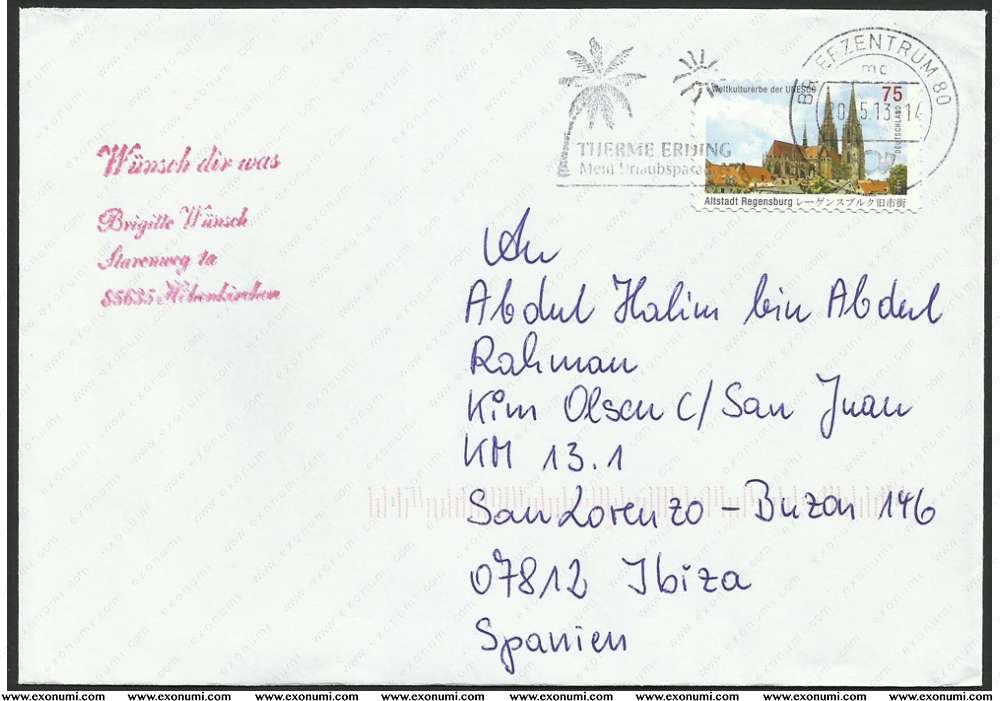 Wünsch dir was
Brigitte Wünsch
Starenweg 1a
85635 Höhenkirchen
THERME ERDING
Mein Urlaubsparadies
BRIEFZENTRUM 80
mc
20.5.13-14
Weltkulturerbe der UNESCO
75
DEUTSCHLAND
Altstadt Regensburg レーゲンスブルク旧市街
An
Abdul Halim bin Abdul
Rahman
Kim Olsen C/San Juan
KM 13.1
San Lorenzo - Buzon 146
07812 Ibiza
Spanien
www.exonumi.com www.exonumi.com www.exonumi.com www.exonumi.com www.exonumi.com www.exonumi.com www.exonumi.com www.exonumi.com